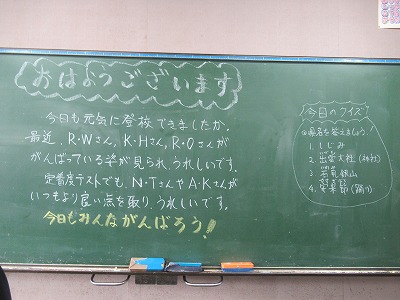 おはようございます
今日も元気に登校できましたか。
最近、R・Wさん、K・Hさん、R・Oさんが
がんばっている姿が見られ、うれしいです。
定着度テストでも、N・TさんやA・Kさんが
いつもより良い点を取り、うれしいです。
今日もみんながんばろう!
今日のクイズ
県名を答えましょう!
1. しじみ
2. 出雲大社(神社)
3. 石見銀山
4. 安来節(踊り)